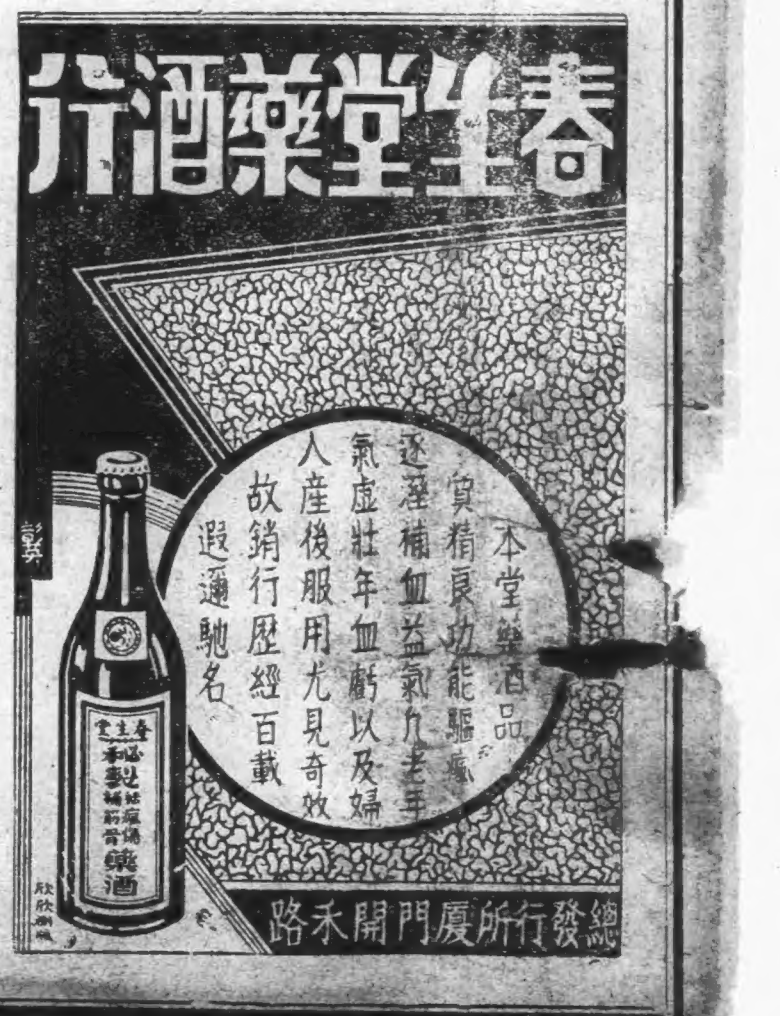 春生堂藥酒行
本堂藥酒品
質精良功能驅瘋
逐溼補血益氣凢老年
氣虛壯年血虧以及婦
人產後服用尤見奇效
故銷行歷經百載
遐邇馳名
春生堂
藥酒
總發行所廈門開禾路